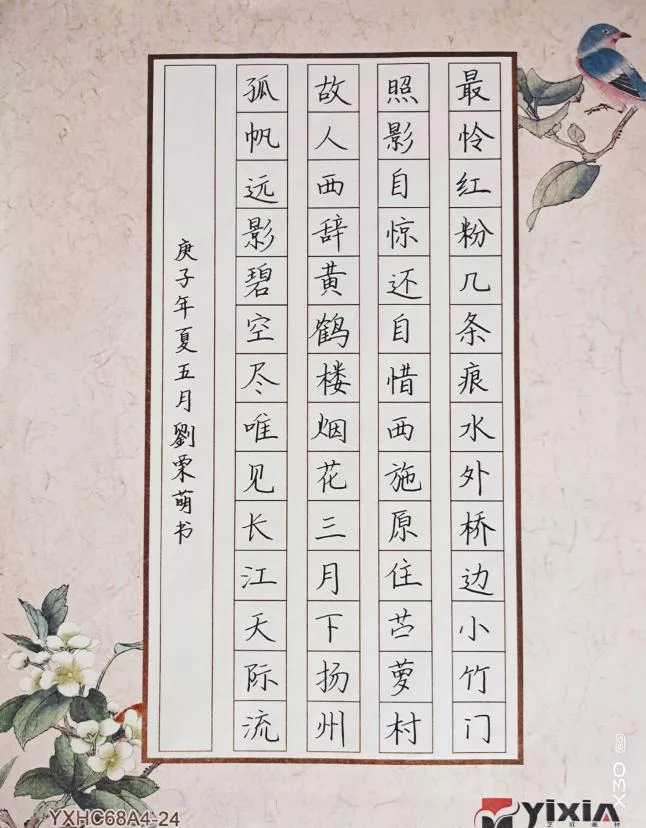 最怜红粉几条痕水外桥边小竹门
照影自惊还自惜西施原住苎萝村
故人西辞黄鹤楼烟花三月下扬州
孤帆远影碧空尽唯见长江天际流
庚子年夏五月劉荣萌书
YXHC68A4-24
yixin
X30
5G